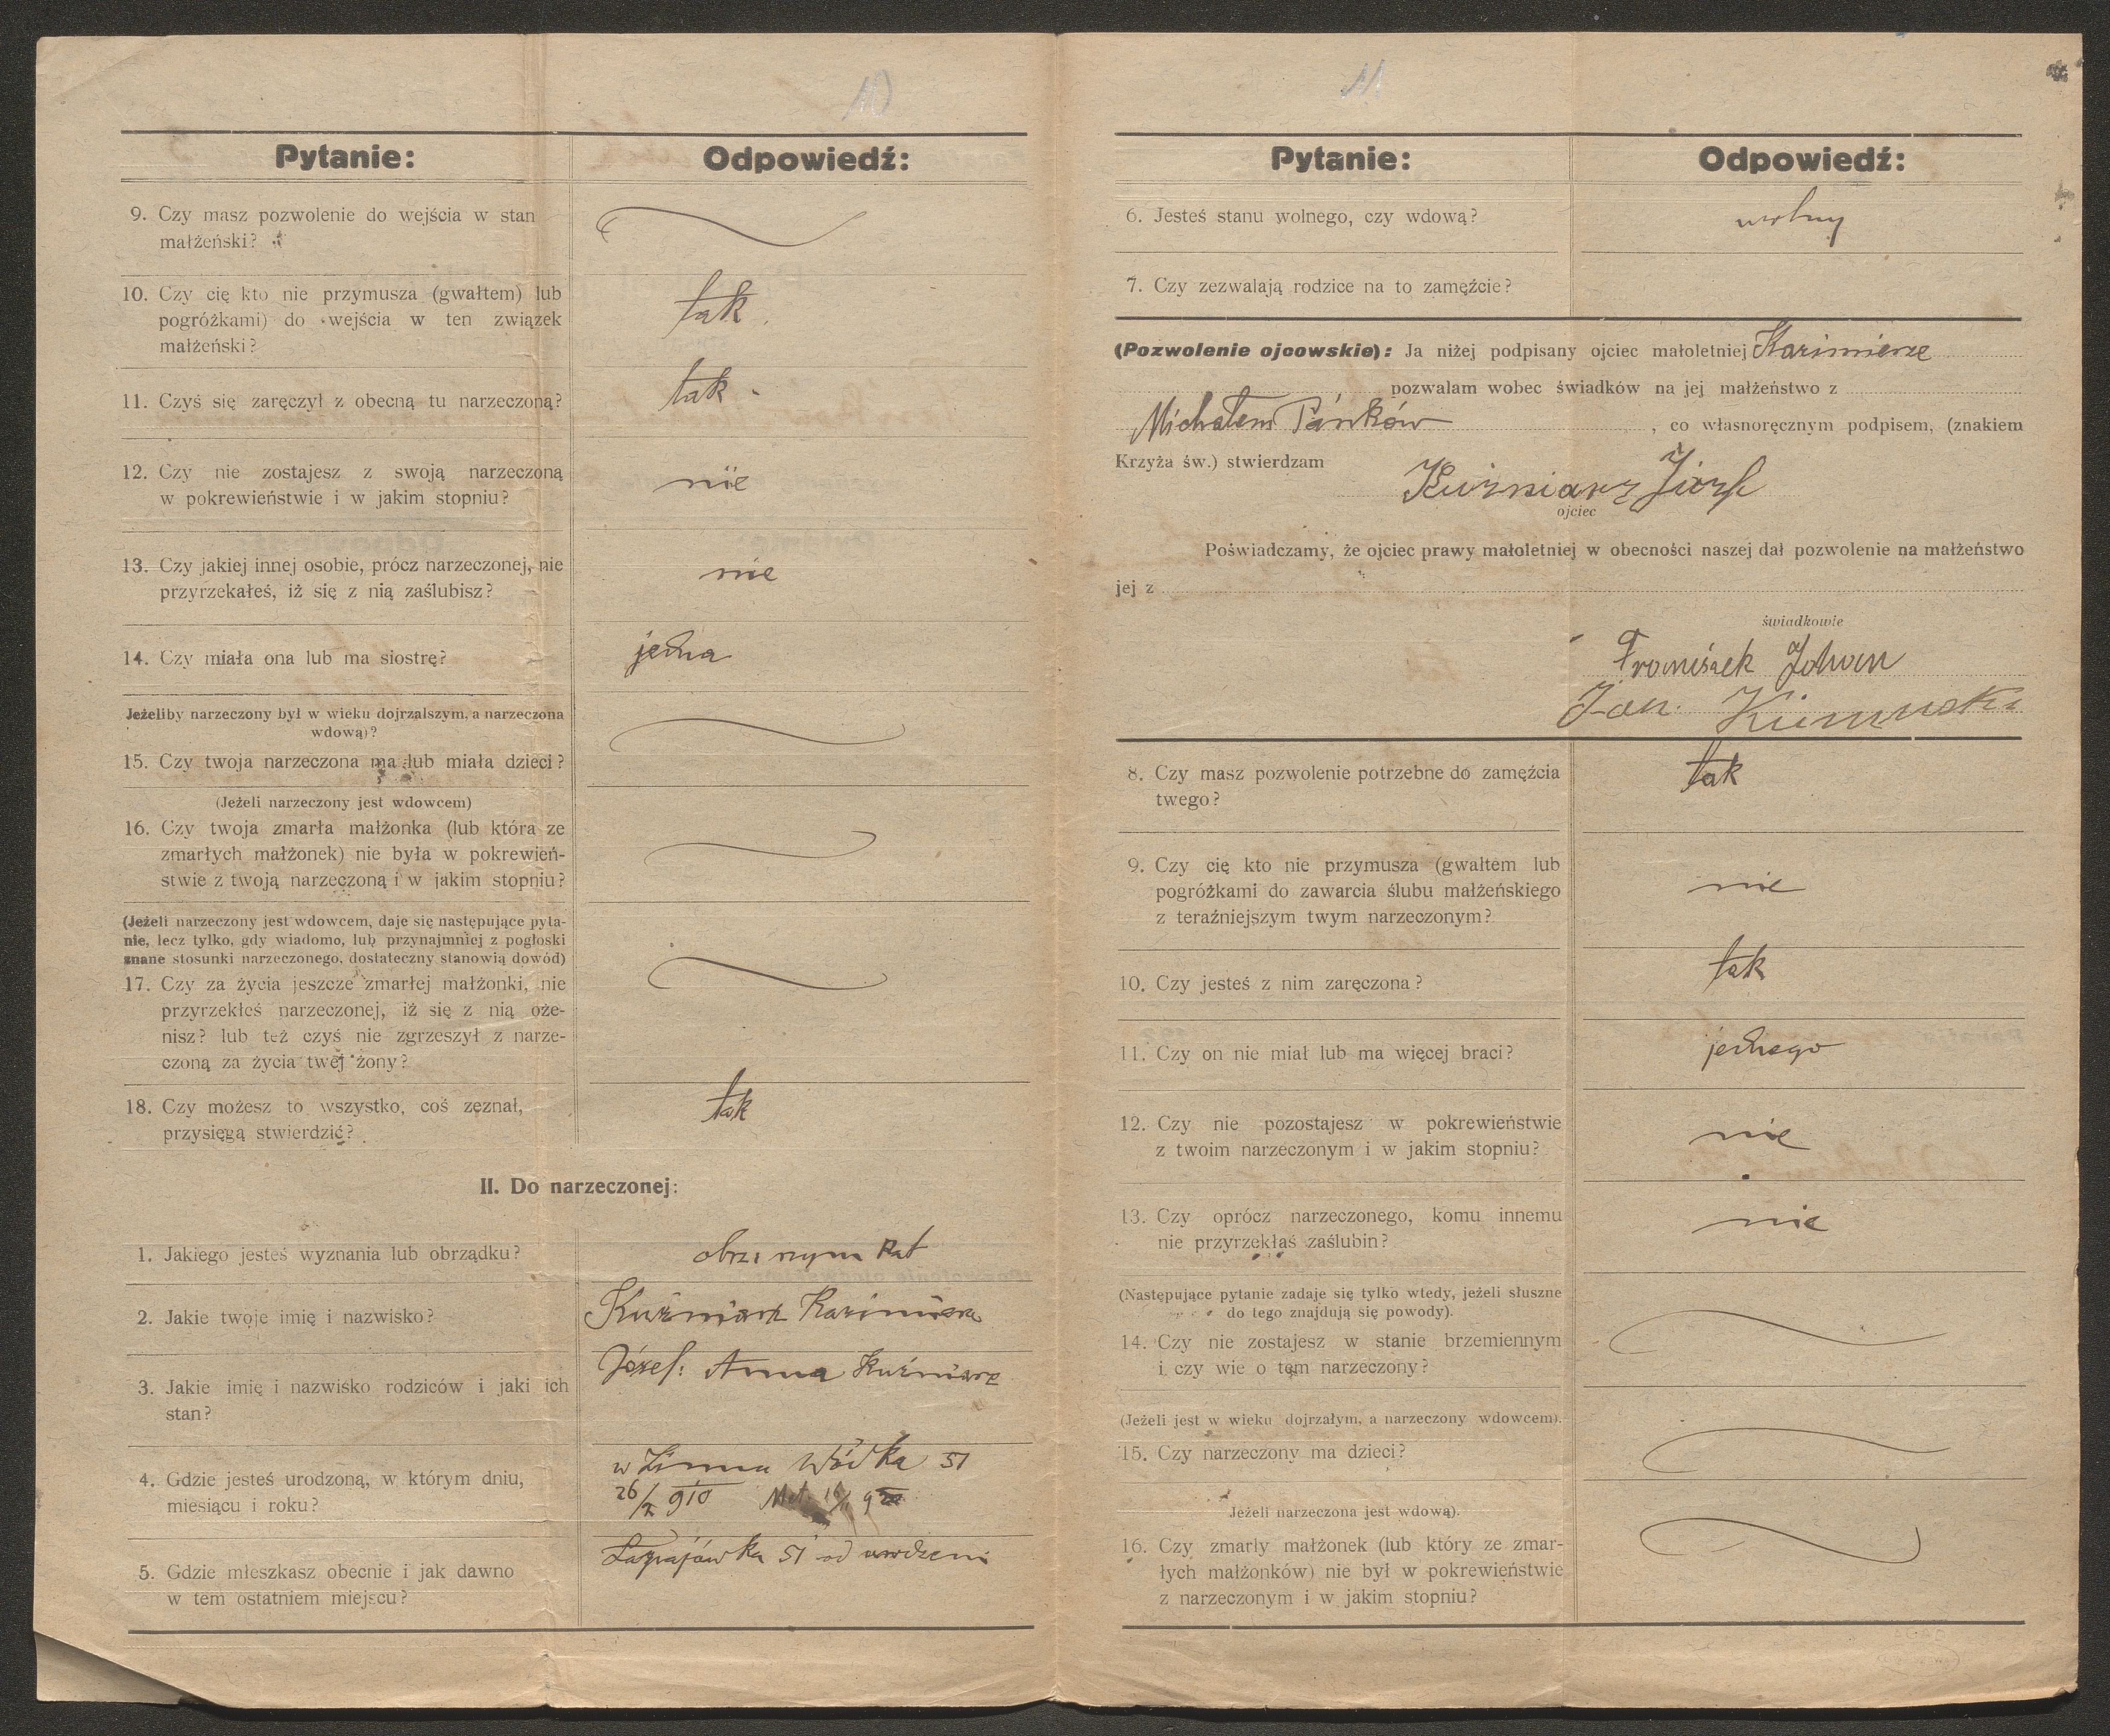 10
Pytanie:
Odpowiedź:
9. Czy masz pozwolenie do wejścia w stan
małżeński?
10. Czy cię kto nie przymusza (gwałtem) lub
pogróżkami) do wejścia w ten związek
małżeński?
tak
11. Czyś się zaręczył z obecną tu narzeczoną?
tak
12. Czy nie zostajesz z swoją narzeczoną
w pokrewieństwie i w jakim stopniu?
nie
13. Czy jakiej innej osobie, prócz narzeczonej, nie
przyrzekałeś, iż się z nią zaślubisz?
nie
14. Czy miała ona lub ma siostrę?
jedna
Jeżeliby narzeczony był w wieku dojrzalszym, a narzeczona
wdową)?
15. Czy twoja narzeczona ma lub miała dzieci?
(Jeżeli narzeczony jest wdowcem)
16. Czy twoja zmarła małżonka (lub która ze
zmarłych małżonek) nie była w pokrewień-
stwie z twoją narzeczoną i w jakim stopniu?
(Jeżeli narzeczony jest wdowcem, daje się następujące pyta-
nie, lecz tylko, gdy wiadomo, lub przynajmniej z pogłoski
znane stosunki narzeczonego, dostateczny stanowią dowód)
17. Czy za życia jeszcze zmarłej małżonki, nie
przyrzekłeś narzeczonej, iż się z nią oże-
nisz? lub też czyś nie zgrzeszył z narze-
czoną za życia twej żony?
18. Czy możesz to wszystko, coś zęznał,
przysięgą stwierdzić?
tak
II. Do narzeczonej:
1. Jakiego jesteś wyznania lub obrządku?
obrz. rzym Kat
2. Jakie twoje imię i nazwisko?
Kuźniarz Kazimiera
3. Jakie imię i nazwisko rodziców i jaki ich
stan?
Józef: Anna Kuźniarz
4. Gdzie jesteś urodzoną, w którym dniu,
miesiącu i roku?
w Zimna Wódka 51
26/X 910
5. Gdzie mieszkasz obecnie i jak dawno
w tem ostatniem miejscu?
51 od
11
Pytanie:
Odpowiedź:
6. Jesteś stanu wolnego, czy wdową?
wolny
7. Czy zezwalają rodzice na to zamęźcie?
(Pozwolenie ojcowskie): Ja niżej podpisany ojciec małoletniej Kazimierze
pozwalam wobec świadków na jej małżeństwo z
Michałem Pańków, co własnoręcznym podpisem, (znakiem
Krzyża św.) stwierdzam
Kuźniarz Józef
ojciec
Poświadczamy, że ojciec prawy małoletniej w obecności naszej dał pozwolenie na małżeństwo
jej z
świadkowie
Jan
8. Czy masz pozwolenie potrzebne do zamęźcia
twego?
tak
9. Czy cię kto nie przymusza (gwałtem lub
pogróżkami do zawarcia ślubu małżeńskiego
z teraźniejszym twym narzeczonym?
nie
10. Czy jesteś z nim zaręczona?
tak
11. Czy on nie miał lub ma więcej braci?
jednego
12. Czy nie pozostajesz w pokrewieństwie
z twoim narzeczonym i w jakim stopniu?
nie
13. Czy oprócz narzeczonego, komu innemu
nie przyrzekłaś zaślubin?
nie
(Następujące pytanie zadaje się tylko wtedy, jeżeli słuszne
do tego znajdują się powody).
14. Czy nie zostajesz w stanie brzemiennym
i czy wie o tem narzeczony?
(Jeżeli jest w wieku dojrzałym, a narzeczony wdowcem).
15. Czy narzeczony ma dzieci?
Jeżeli narzeczona jest wdową).
16. Czy zmarły małżonek (lub który ze zmar-
łych małżonków) nie był w pokrewieństwie
z narzeczonym i w jakim stopniu?